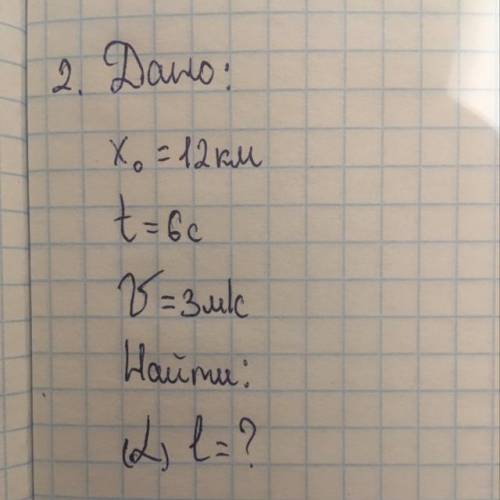 2. Дано:
x₀ = 12 км
t = 6 с
V = 3 м/с
Найти:
(L) l = ?